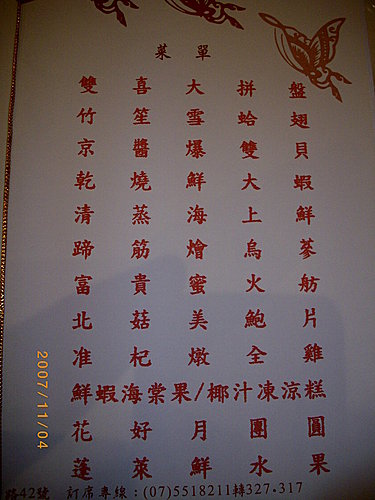 菜單
雙喜大拼盤
竹笙雪蛤翅
京醬爆雙貝
乾燒鮮大蝦
清蒸海上鮮
蹄筋燴烏蔘
富貴蜜火舫
北菇美鮑片
准杞燉全雞
鮮蝦海棠果/椰汁凍涼糕
花好月團圓
蓬萊鮮水果
路42號 訂席專線:(07)5518211轉327.317
2007/11/04